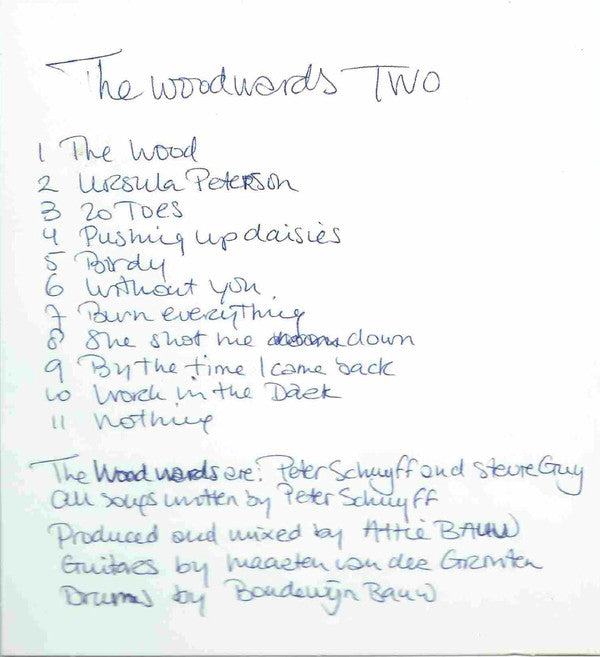 The Woodwards TWO
1 The Wood
2 Ursula Peterson
3 20 Toes
4 Pushing up daisies
5 Birdy
6 Without you
7 Burn everything
8 She shot me down
9 By the time I came back
10 Work in the Dark
11 Nothing
The Woodwards are: Peter Schuyff and Stevie Guy
All songs written by Peter Schuyff
Produced and mixed by Attie BAUW
Guitars by Maarten van der Grinten
Drums by Boudewijn Bauw